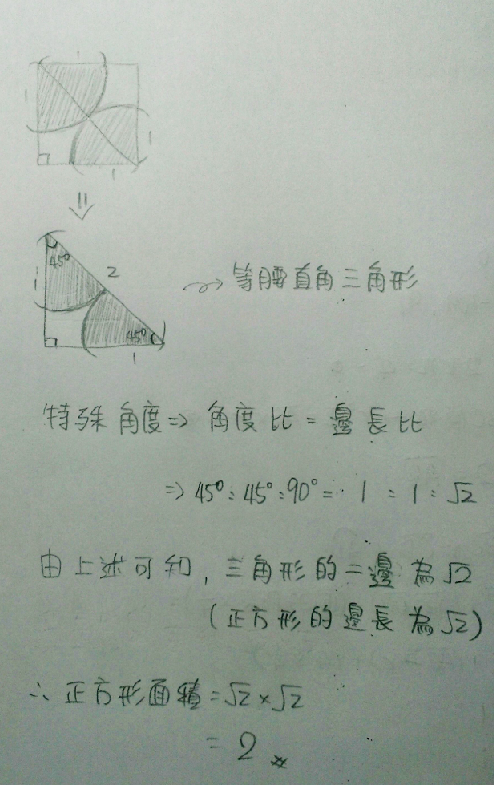 1
1
1
1
45°
2
1
45°
1
⇝ 等腰直角三角形
特殊角度⇒ 角度比 = 邊長比
⇒ 45°:45°:90° = 1 : 1 : √2
由上述可知, 三角形的二邊為√2
(正方形的邊長為√2)
∴ 正方形面積 = √2 × √2
= 2